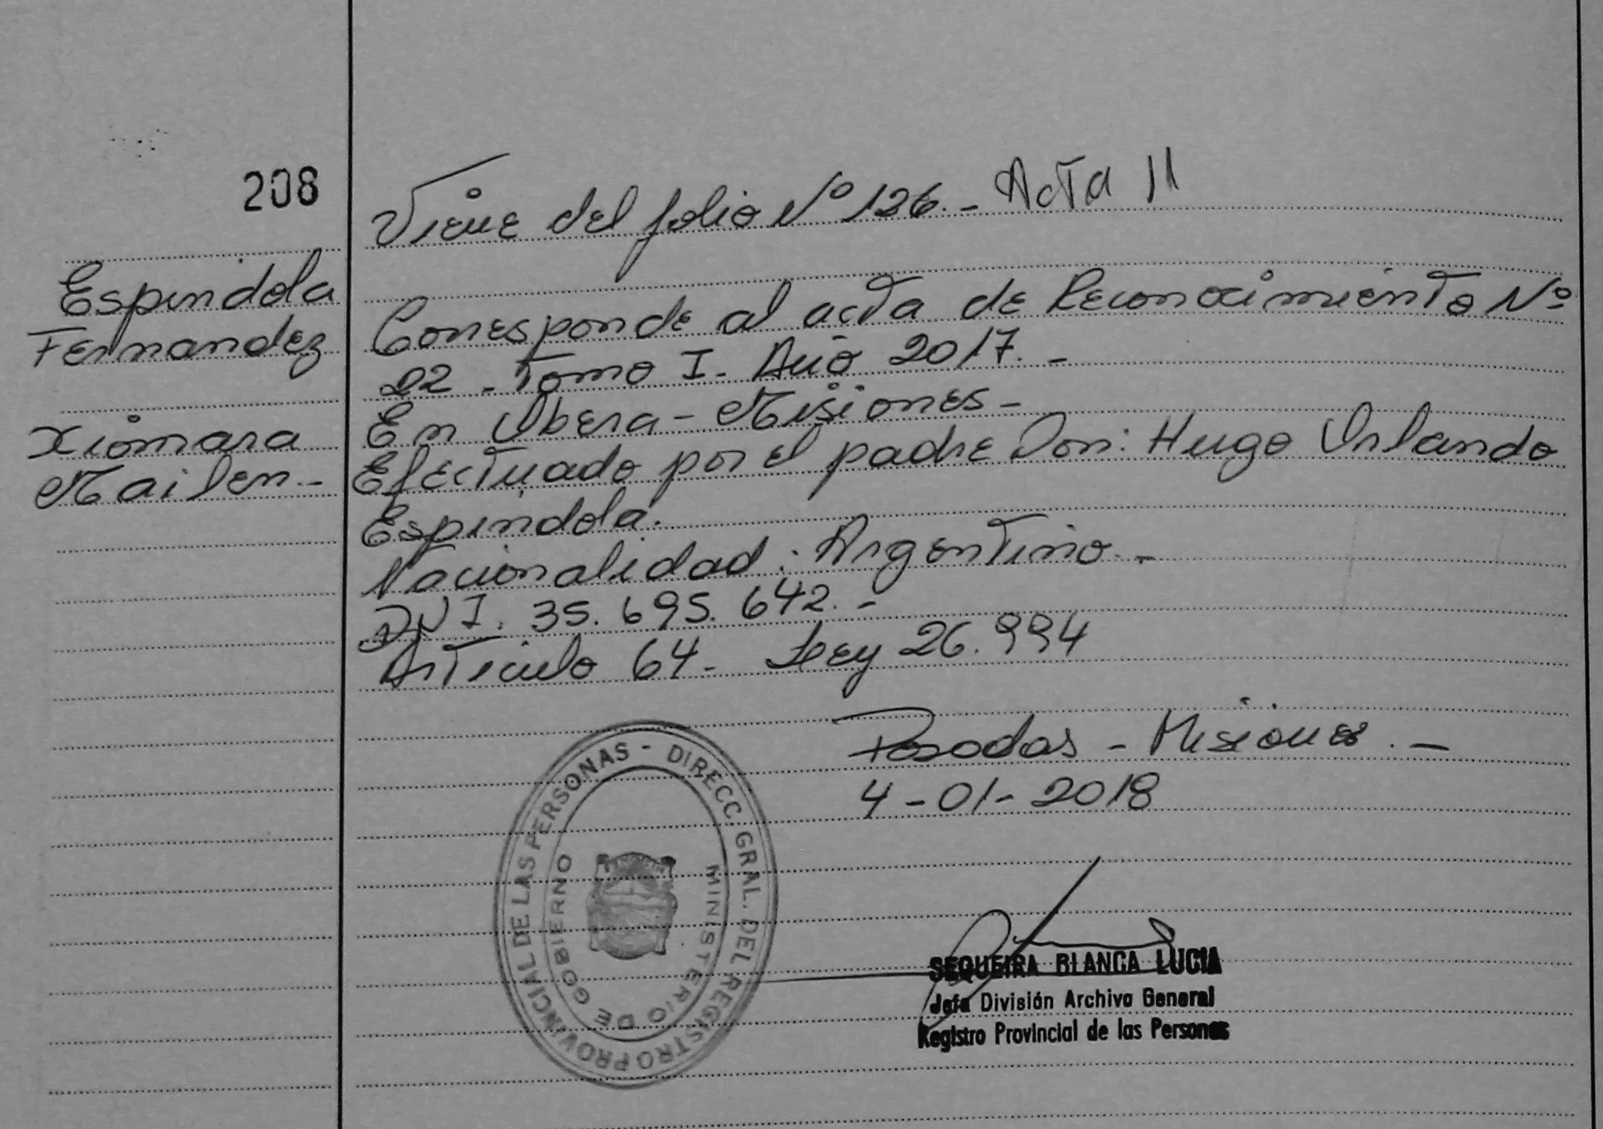 208
Viene del folio Nº 136.- Acta 11
Espindola
Fernandez
Xiomara
Mailen-
Corresponde al acta de Reconocimiento Nº
22 - Tomo I - Año 2017.-
En Obera - Misiones-
Efectuado por el padre Don: Hugo Orlando
Espindola.
Nacionalidad: Argentino.-
DNI. 35.695.642.-
Artículo 64- Ley 26.994
Posadas - Misiones.-
4-01-2018
DIRECC. GRAL. DEL REGISTRO PROVINCIAL DE LAS PERSONAS -
MINISTERIO DE GOBIERNO
SEQUEIRA BLANCA LUCIA
Jefa División Archivo General
Registro Provincial de las Personas